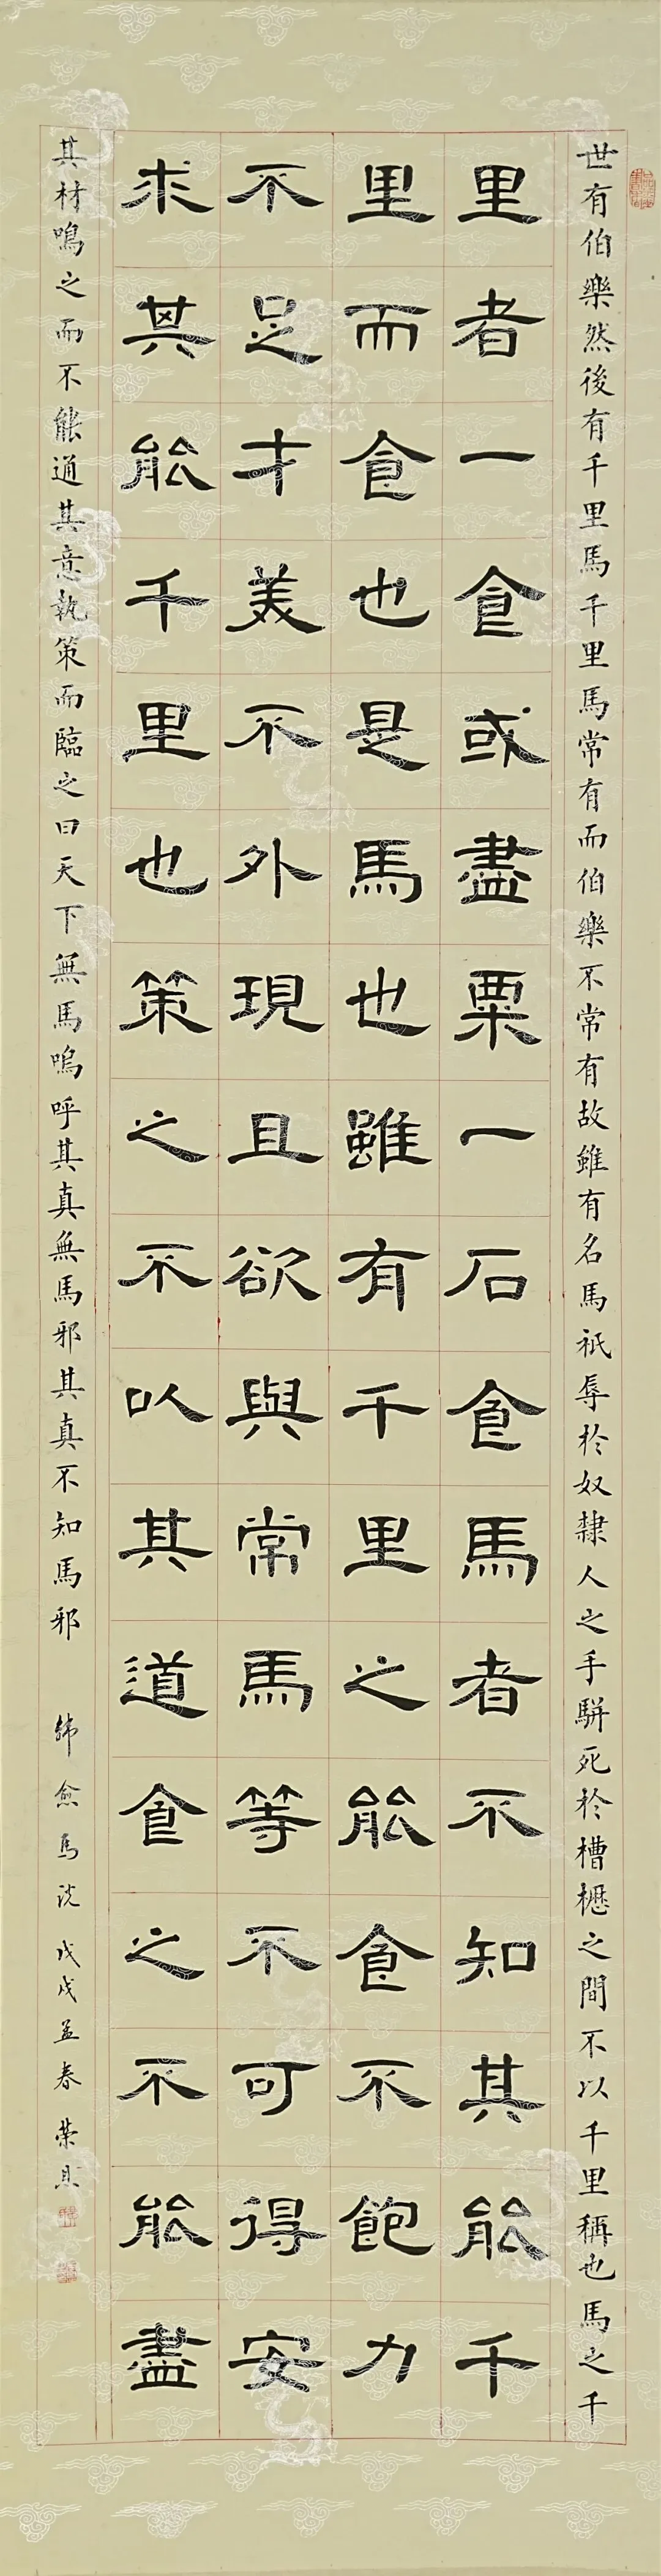 世有伯樂然後有千里馬千里馬常有而伯樂不常有故雖有名馬祇辱於奴隸人之手駢死於槽櫪之間不以千里稱也馬之千
里者一食或盡粟一石食馬者不知其能千
里而食也是馬也雖有千里之能食不飽力
不足才美不外現且欲與常馬等不可得安
求其能千里也策之不以其道食之不能盡
其材鳴之而不能通其意執策而臨之曰天下無馬嗚呼其真無馬邪其真不知馬邪 韓愈馬說 戊戌孟春 榮